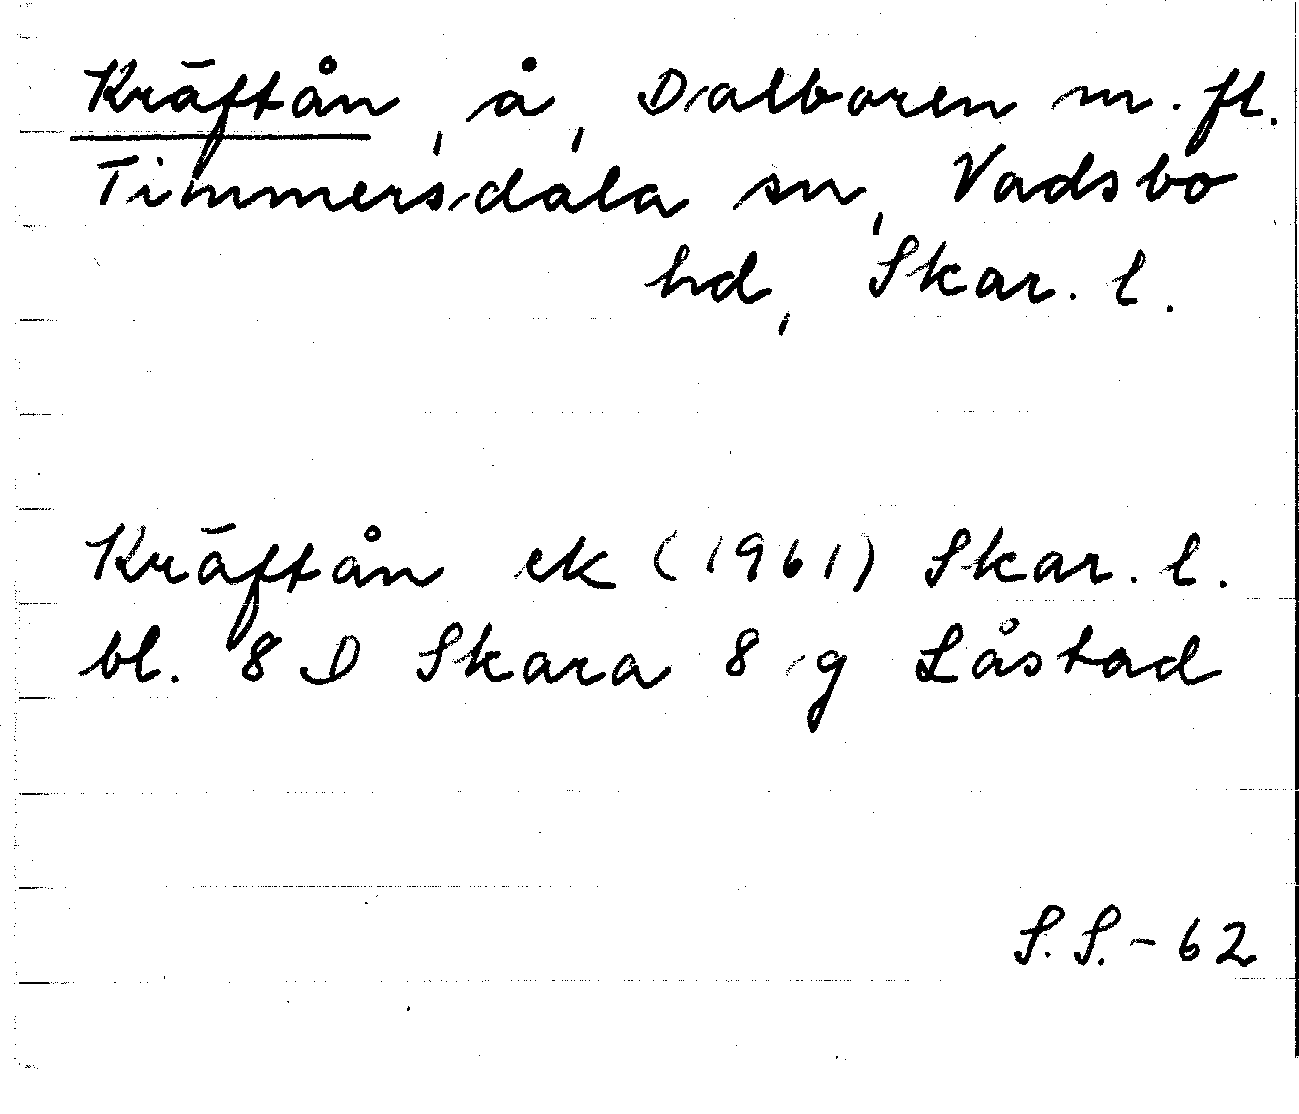 Kräftån, å, Dalboren m. fl.
Timmersdala sn, Vadsbo
hd, Skar. l.
Kräftån ek (1961) Skar. l.
bl. 8 D Skara 8 g Låstad
S. S. - 62